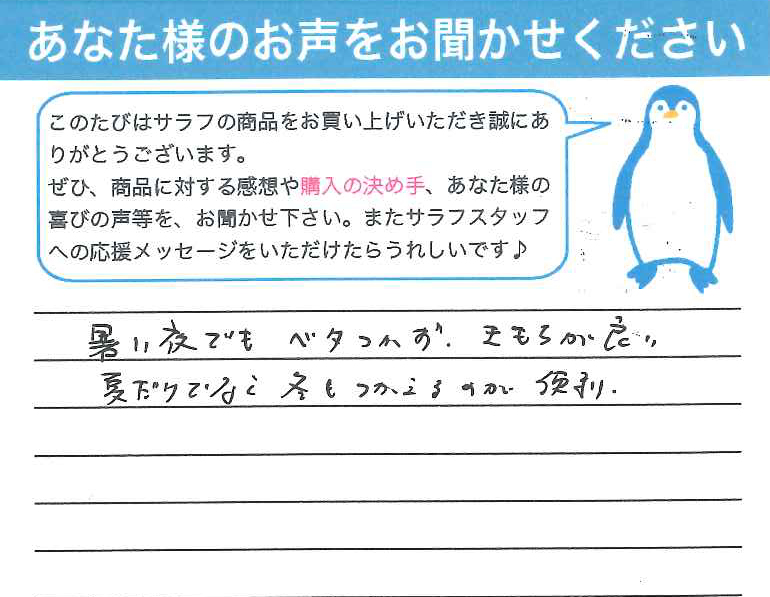 あなた様のお声をお聞かせください
このたびはサラフの商品をお買い上げいただき誠にあ
りがとうございます。
ぜひ、商品に対する感想や購入の決め手、あなた様の
喜びの声等を、お聞かせ下さい。またサラフスタッフ
への応援メッセージをいただけたらうれしいです♪
暑い夜でも ベタつかず、きもちが良い
夏だけでなく冬もつかえるのが便利.